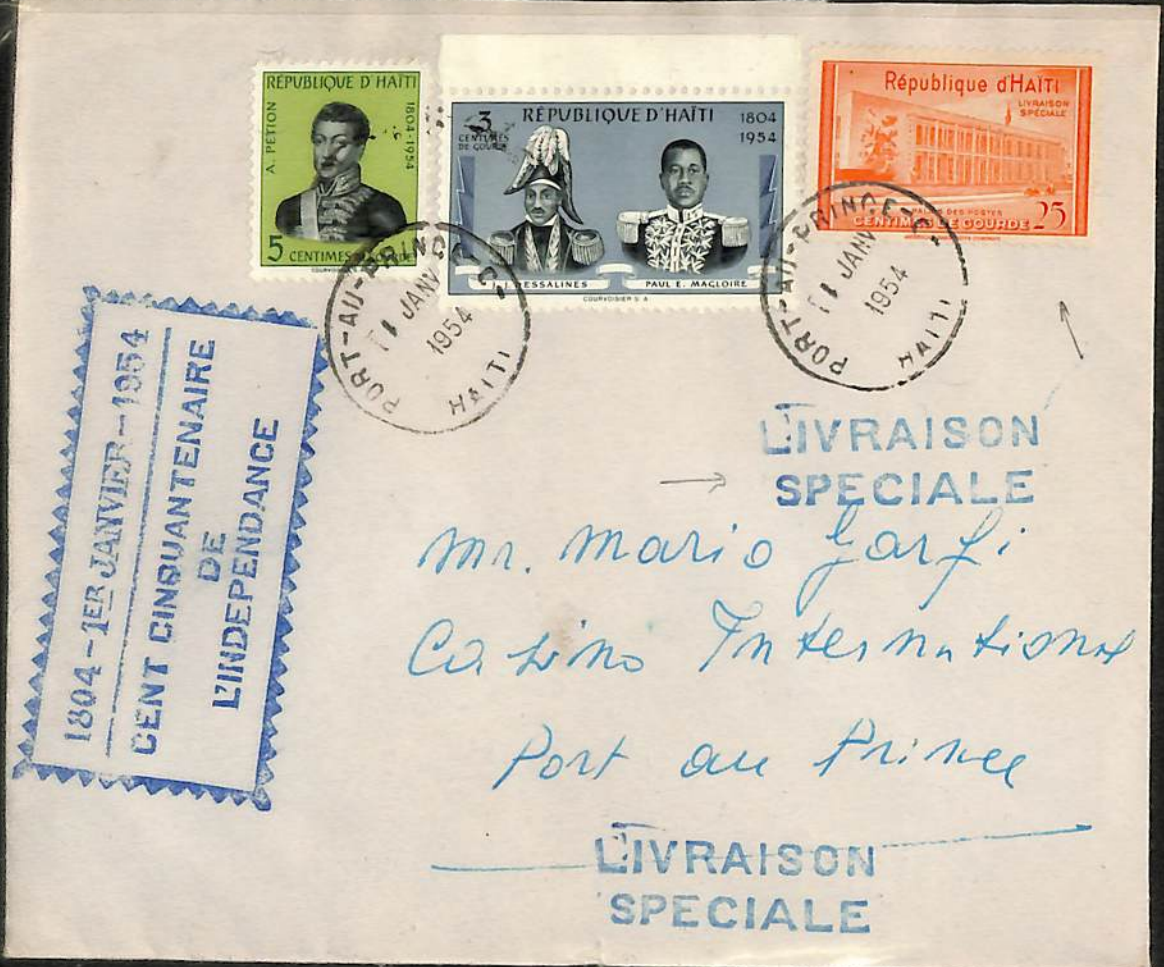 RÉPUBLIQUE D'HAÏTI
A. PETION
1804-1954
5 CENTIMES DE GOURDE
COURVOISIER
3
CENTIMES
DE GOURDE
RÉPUBLIQUE D'HAÏTI
1804
1954
J. J. DESSALINES
PAUL E. MAGLOIRE
COURVOISIER S. A
République d'HAÏTI
LIVRAISON
SPÉCIALE
PALAIS DES POSTES
CENTIMES DE GOURDE 25
PORT-AU-PRINCE-C-
1 JANV
1954
HAITI
PORT-AU-PRINCE-C-
1 JANV
1954
HAITI
1804-1ER JANVIER-1954
CENT CINQUANTENAIRE
DE
L'INDEPENDANCE
LIVRAISON
SPECIALE
Mr. Mario Garfi
Casino International
Port au Prince
LIVRAISON
SPECIALE